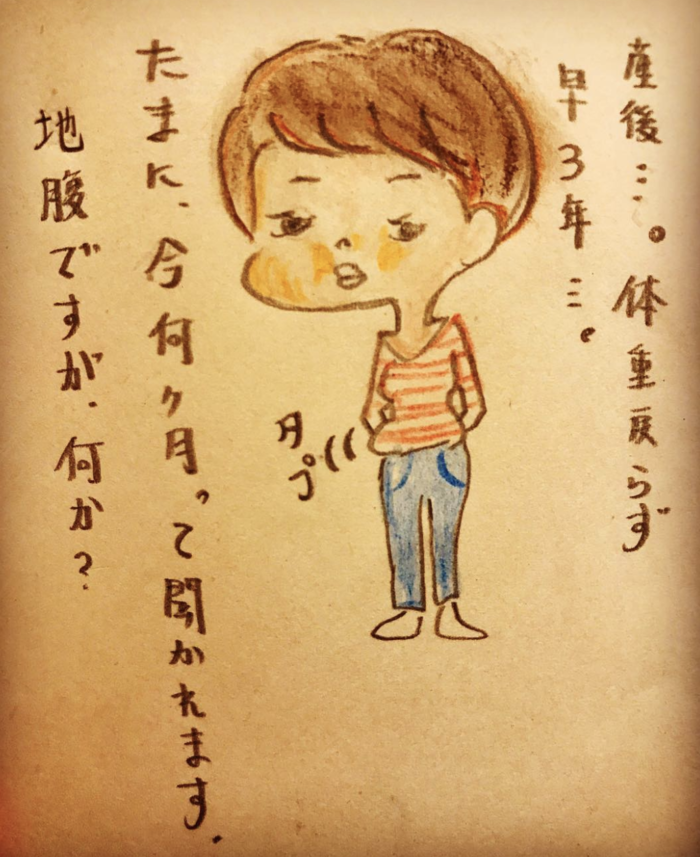 産後…。体重戻らず
早3年…。
タプ
たまに、今何ヶ月って聞かれます.
地腹ですが、何か?